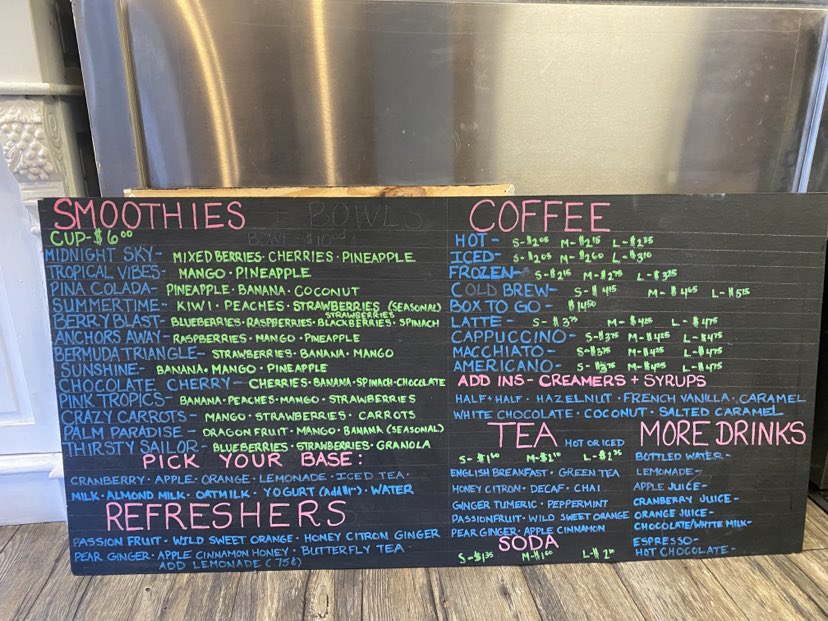 SMOOTHIES + BOWLS
CUP-$6.00 BOWL $10.00
MIDNIGHT SKY- MIXED BERRIES · CHERRIES · PINEAPPLE
TROPICAL VIBES- MANGO · PINEAPPLE
PINA COLADA- PINEAPPLE · BANANA · COCONUT
SUMMERTIME- KIWI · PEACHES · STRAWBERRIES (SEASONAL)
STRAWBERRIES
BERRY BLAST- BLUEBERRIES · RASPBERRIES · BLACKBERRIES · SPINACH
ANCHORS AWAY- RASPBERRIES · MANGO · PINEAPPLE
BERMUDA TRIANGLE- STRAWBERRIES · BANANA · MANGO
SUNSHINE- BANANA · MANGO · PINEAPPLE
CHOCOLATE CHERRY- CHERRIES · BANANA · SPINACH · CHOCOLATE
PINK TROPICS- BANANA · PEACHES · MANGO · STRAWBERRIES
CRAZY CARROTS- MANGO · STRAWBERRIES · CARROTS
PALM PARADISE- DRAGON FRUIT · MANGO · BANANA (SEASONAL)
THIRSTY SAILOR- BLUEBERRIES · STRAWBERRIES · GRANOLA
PICK YOUR BASE:
CRANBERRY · APPLE · ORANGE · LEMONADE · ICED TEA ·
MILK · ALMOND MILK · OATMILK · YOGURT · WATER
REFRESHERS
PASSION FRUIT · WILD SWEET ORANGE · HONEY CITRON GINGER
PEAR GINGER · APPLE CINNAMON HONEY · BUTTERFLY TEA
ADD LEMONADE (75¢)
COFFEE
HOT- S-$2.05 M-$2.15 L-$2.35
ICED- S-$2.05 M-$2.60 L-$3.10
FROZEN- S-$2.15 M-$2.75 L-$3.25
COLD BREW- S-$4.15 M-$4.65 L-$5.15
BOX TO GO- $14.50
LATTE- S-$3.75 M-$4.25 L-$4.75
CAPPUCCINO- S-$3.75 M-$4.25 L-$4.75
MACCHIATO- S-$3.75 M-$4.25 L-$4.75
AMERICANO- S-$3.75 M-$4.25 L-$4.75
ADD INS- CREAMERS + SYRUPS
HALF+HALF · HAZELNUT · FRENCH VANILLA · CARAMEL
WHITE CHOCOLATE · COCONUT · SALTED CARAMEL
TEA HOT OR ICED
S-$1.60 M-$2.10 L-$2.35
ENGLISH BREAKFAST · GREEN TEA
HONEY CITRON · DECAF · CHAI
GINGER TUMERIC · PEPPERMINT
PASSIONFRUIT · WILD SWEET ORANGE
PEAR GINGER · APPLE CINNAMON
SODA
S-$1.35 M-$1.60 L-$2.10
MORE DRINKS
BOTTLED WATER-
LEMONADE-
APPLE JUICE-
CRANBERRY JUICE-
ORANGE JUICE-
CHOCOLATE/WHITE MILK-
ESPRESSO-
HOT CHOCOLATE-